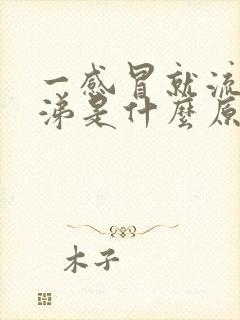 一感冒就流
涕是什麼原
木子